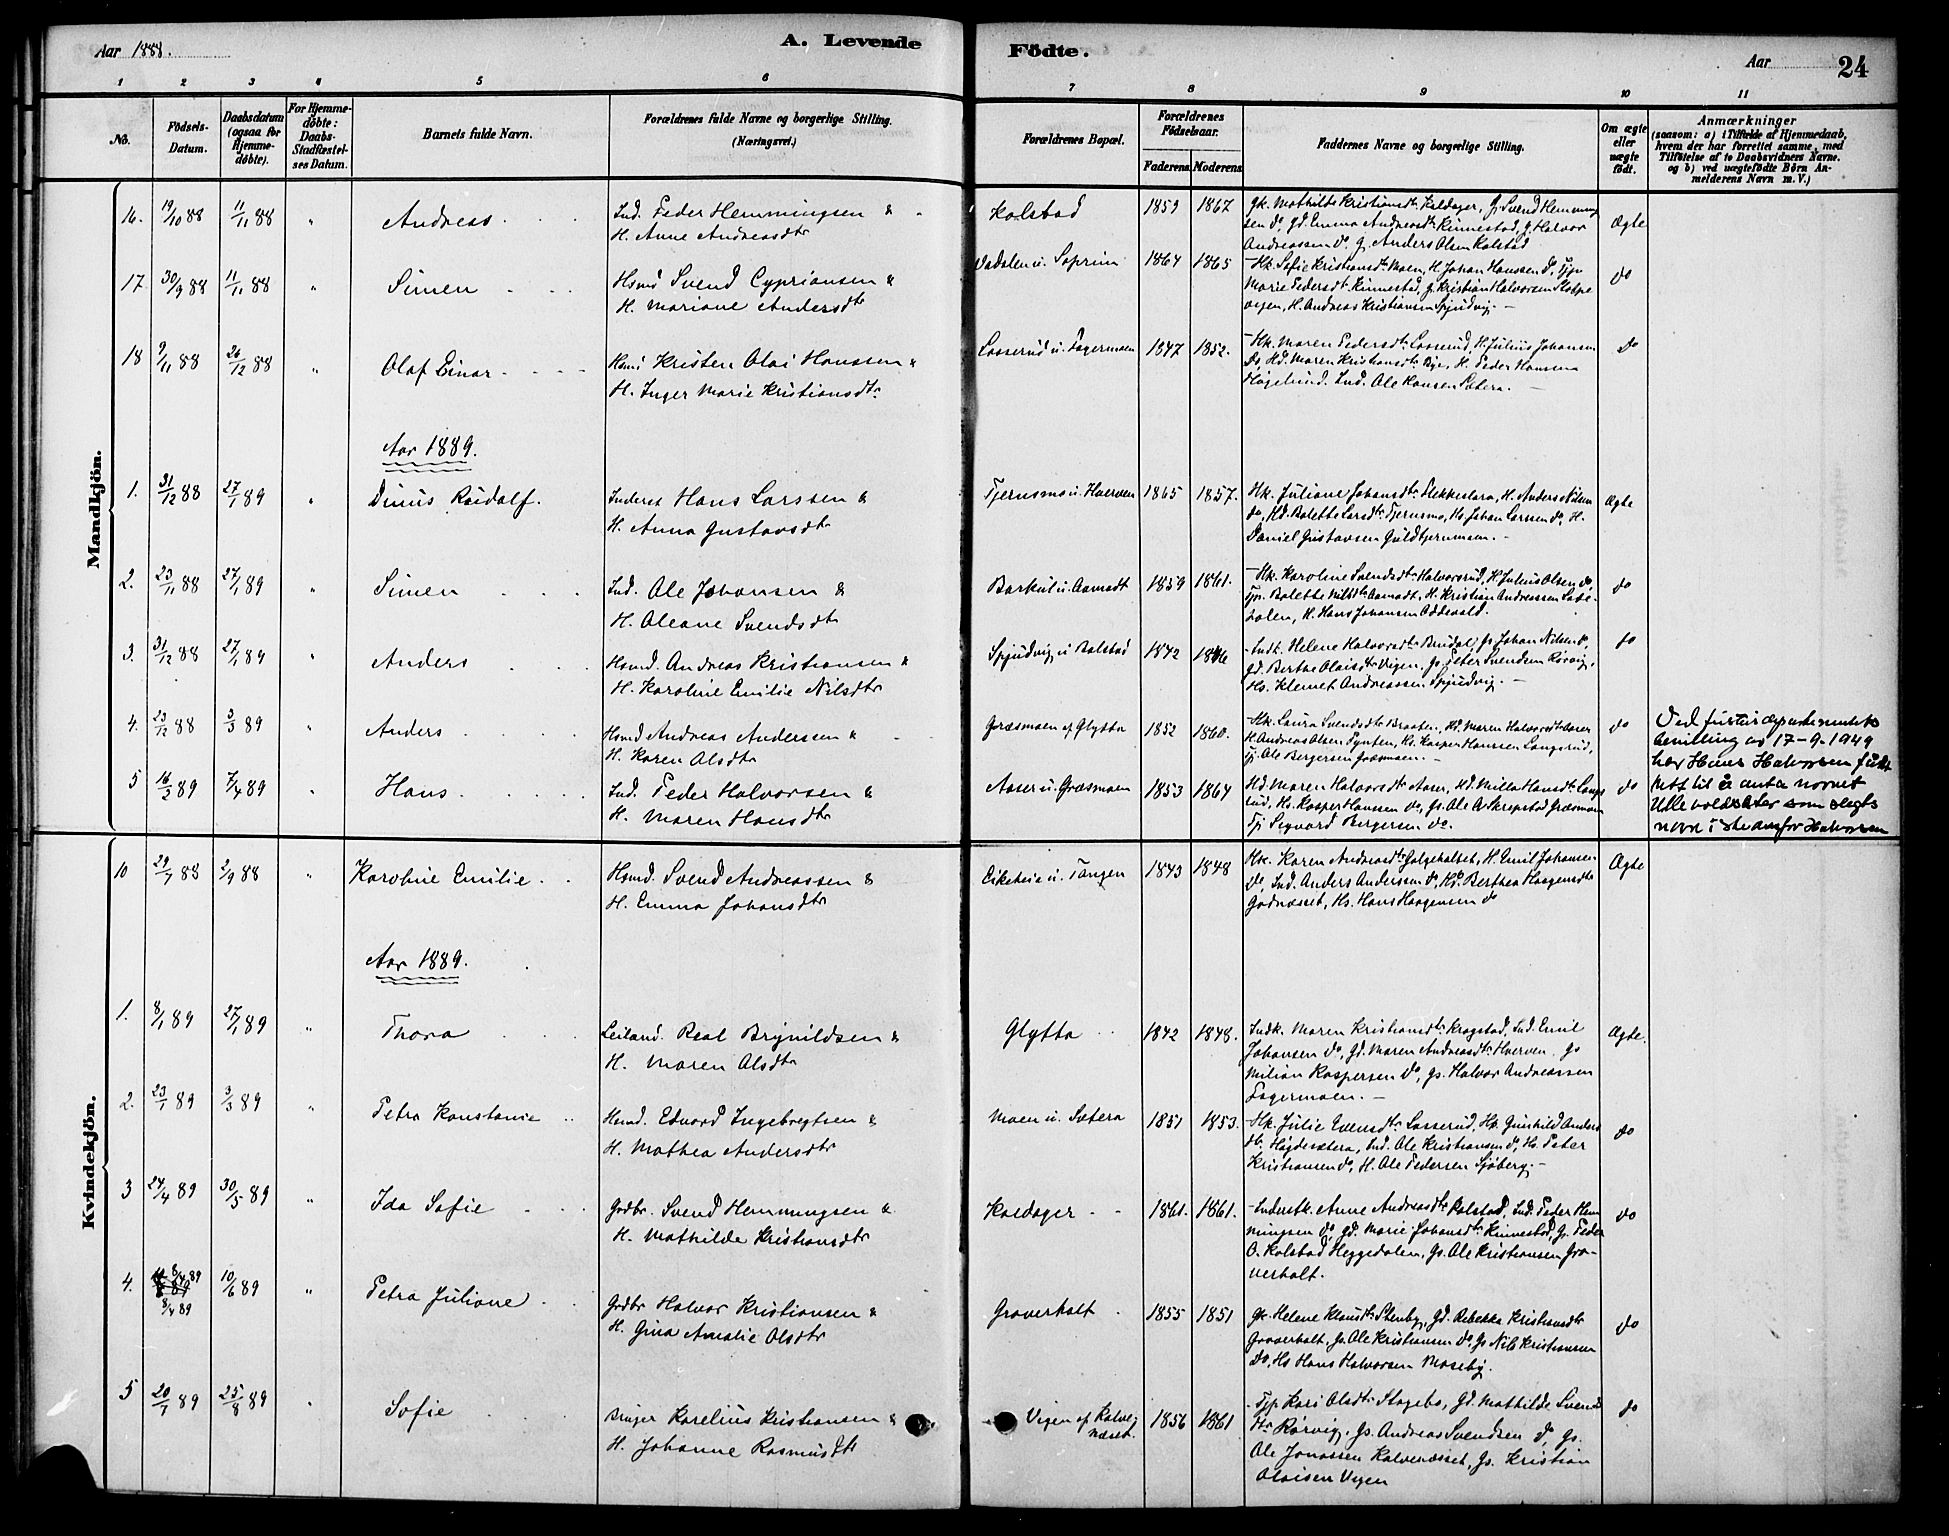 Aar 1888.
A. Levende
Födte.
Aar
24
1 2 3 4 5 6 7 8 9 10 11
No.
Födsels-Datum.
Daabsdatum (ogsaa for Hjemme-döbte).
For Hjemme-döbte: Daabs-Stadfæstel-ses Datum.
Barnets fulde Navn.
Forældrenes fulde Navne og borgerlige Stilling.
(Næringsvei.)
Forældrenes Bopæl.
Forældrenes Födselsaar.
Faderens
Moderens
Faddernes Navne og borgerlige Stilling.
Om ægte eller uægte födt.
Anmærkninger
(saasom: a) i Tilfælde af Hjemmedaab,
hvem der har forrettet samme, med
Tilföielse af to Daabsvidners Navne.
og b) ved uægtefödte Börn An-
melderens Navn m. V.)
Mandkjön.
16. 19/10 88 11/11 88 " Andreas Ind. Peder Hemmingsen &
H. Anne Andreasdtr
Kolstad 1859 1867 Gk. Mathilde Kristiansdtr Kaldager, Gj. Svend Hemming
sen do, Gd. Emma Andreasdtr Kinnestad, G. Halvor
Andreassen do, G. Anders Olsen Kolstad
Ægte
17 30/9 88 11/11 88 " Simen Hsmd Svend Cypriansen &
H. Mariane Andersdtr
Dadalen u. Soprim 1864 1865 Hk. Sofie Kristiansdtr Moen, H. Johan Hanssen do, Tjp.
Marie Pedersdtr Kinnestad, G. Kristian Halvorsen
H. Andreas Kristiansen Spjudvig
do
18 9/11 88 26/12 88 " Olaf Einar Hsmd Kristen Olai Hanssen &
H. Inger Marie Kristiansdtr
Lasserud u. Fagermoen 1847 1852. Hk. Maren Pedersdtr Lasserud, H. Julius Johansen
do, Hd. Maren Kristiansdtr Rye, H. Peder Hansen
Høgelund. Ind. Ole Hansen Sætera.
do
Aar 1889.
1. 31/12 88 27/1 89 " Dinus Raidolf. Inderst Hans Larssen &
H. Anna Gustavsdtr
Tjernsmo u. Huerven 1865 1857. Hk. Juliane Johansdtr Flekkeslara, H. Anders Nilsen
do, Hd. Bolette Larsdtr Tjernsmo, Hs. Johan Larssen do, H.
Daniel Gustavsen Guldtjernmoen.
Ægte
2. 23/11 88 27/1 89 " Simen Ind. Ole Johansen &
H. Oleane Svendsdtr
Barkul u. Aamodt 1859 1861. Hk. Karoline Svendsdtr Halvorsrud, H. Julius Olsen do,
Tjp. Bolette Nilsdtr Aamodt, H. Kristian Andreassen
H. Hans Johansen Oddevald.
do
3. 31/12 88 27/1 89 " Anders Hsmd. Andreas Kristiansen &
H. Karoline Emilie Nilsdtr
Spjudvig u. Kolstad 1842 1846 Indk. Helene Halvorsdtr Brudal, Gs. Johan Nilsen do,
Gd. Berthe Olaisdtr Vigen, Gs. Peter Svendsen Rørvig,
Hs. Klemet Andreassen Spjudvig.
do
4. 23/12 88 3/3 89 " Anders Hsmd Andreas Anderssen &
H. Karen Olsdtr
Græsmoen af Glytta 1852 1860. Hk. Laura Svendsdtr Braaten, Hd. Maren Halvorsdtr Aaser
H. Andreas Olsen Tynten, Hs. Kasper Hanssen Langerud,
Tj. Ole Bergersen Græsmoen.
do
5 16/2 89 7/4 89 Hans Ind. Peder Halvorsen &
H. Maren Hansdtr
Aaser u. Græsmoen 1853 1864 Hd. Maren Halvorsdtr Aaser, Hd. Milla Hansdtr Lange
rud, Hs. Kasper Hanssen do, Gs. Ole A. Skrepstad Græsmoen
Tj. Sigvard Bergersen do.
do
Ved justisdepartementets
bevilling av 17-9-1949
har Hans Halvorsen fått
rett til å anta navnet
Ullevoldsæter som slekts
navn i stedenfor Halvorsen
Kvindekjön.
10 29/7 88 2/9 88 " Karoline Emilie Hsmd. Svend Andreassen &
H. Emma Johansdtr
Eikeheia u. Tangen 1843 1848 Hk. Karen Andreasdtr Galgehaltet, H. Emil Johansen
do, Ind. Anders Anderssen do, Hd. Berthea Haagensdtr
Godnæsset, Hs. Hans Haagensen do
Ægte
Aar 1889.
1. 8/1 89 27/1 89 " Thora Leiland. Real Brynildsen &
H. Maren Olsdtr
Glytta 1842 1848. Indk. Maren Kristiansdtr Kragstad, Ind. Emil
Johansen do, Gd. Maren Andreasdtr Huerven, Gs
Milian Kaspersen do, Gs. Halvor Andreassen
Fagermoen.
Ægte.
2. 23/1 89 3/3 89 " Petra Konstanse Hsmd. Edvard Ingebregtsen &
H. Mathea Andersdtr
Moen u. Sætera 1851 1853. Hk. Julie Evensdtr Lasserud, Hp. Gunhild Anders
dtr Høgdesætera, Ind. Ole Kristiansen do, Hs. Peter
Kristiansen do, H. Ole Pedersen Sjøberg.
do
3 24/4 89 30/5 89 " Ida Sofie Grdbr. Svend Hemmingsen &
H. Mathilde Kristiansdtr
Kaldager 1861. 1861. Inderstk. Anne Andreasdtr Kolstad, Ind. Peder Hem
mingsen do, Gd. Marie Johansdtr Kinnestad, Gs. Peder
O. Kolstad Heggedalen, Gs. Ole Kristiansen Gra-
verholt.
do
4. 8/4 89
8/4 89 10/6 89 " Petra Juliane Grdbr Halvor Kristiansen &
H. Gina Amalie Olsdtr
Graverholt 1855 1851 Gk. Helene Klausdtr Stenby, Gd. Rebekka Kristiansdtr
Graverholt, Gs. Ole Kristiansen do, Gs Nils Kristiansen
do, Hs Hans Halvorsen Moseby.
do
5 20/7 89 25/8 89 " Sofie Bruger Karelius Kristiansen &
H. Johanne Rasmusdtr
Vigen af Kalve
næset. 1856 1861 Tjp Kari Olsdtr Stagebo, Gd. Mathilde Svends
dtr Rørvig, Gs. Andreas Svendsen do, Gs.
Ole Jonassen Kalvenæsset, Gs. Kristian
Olaisen Vigen
do